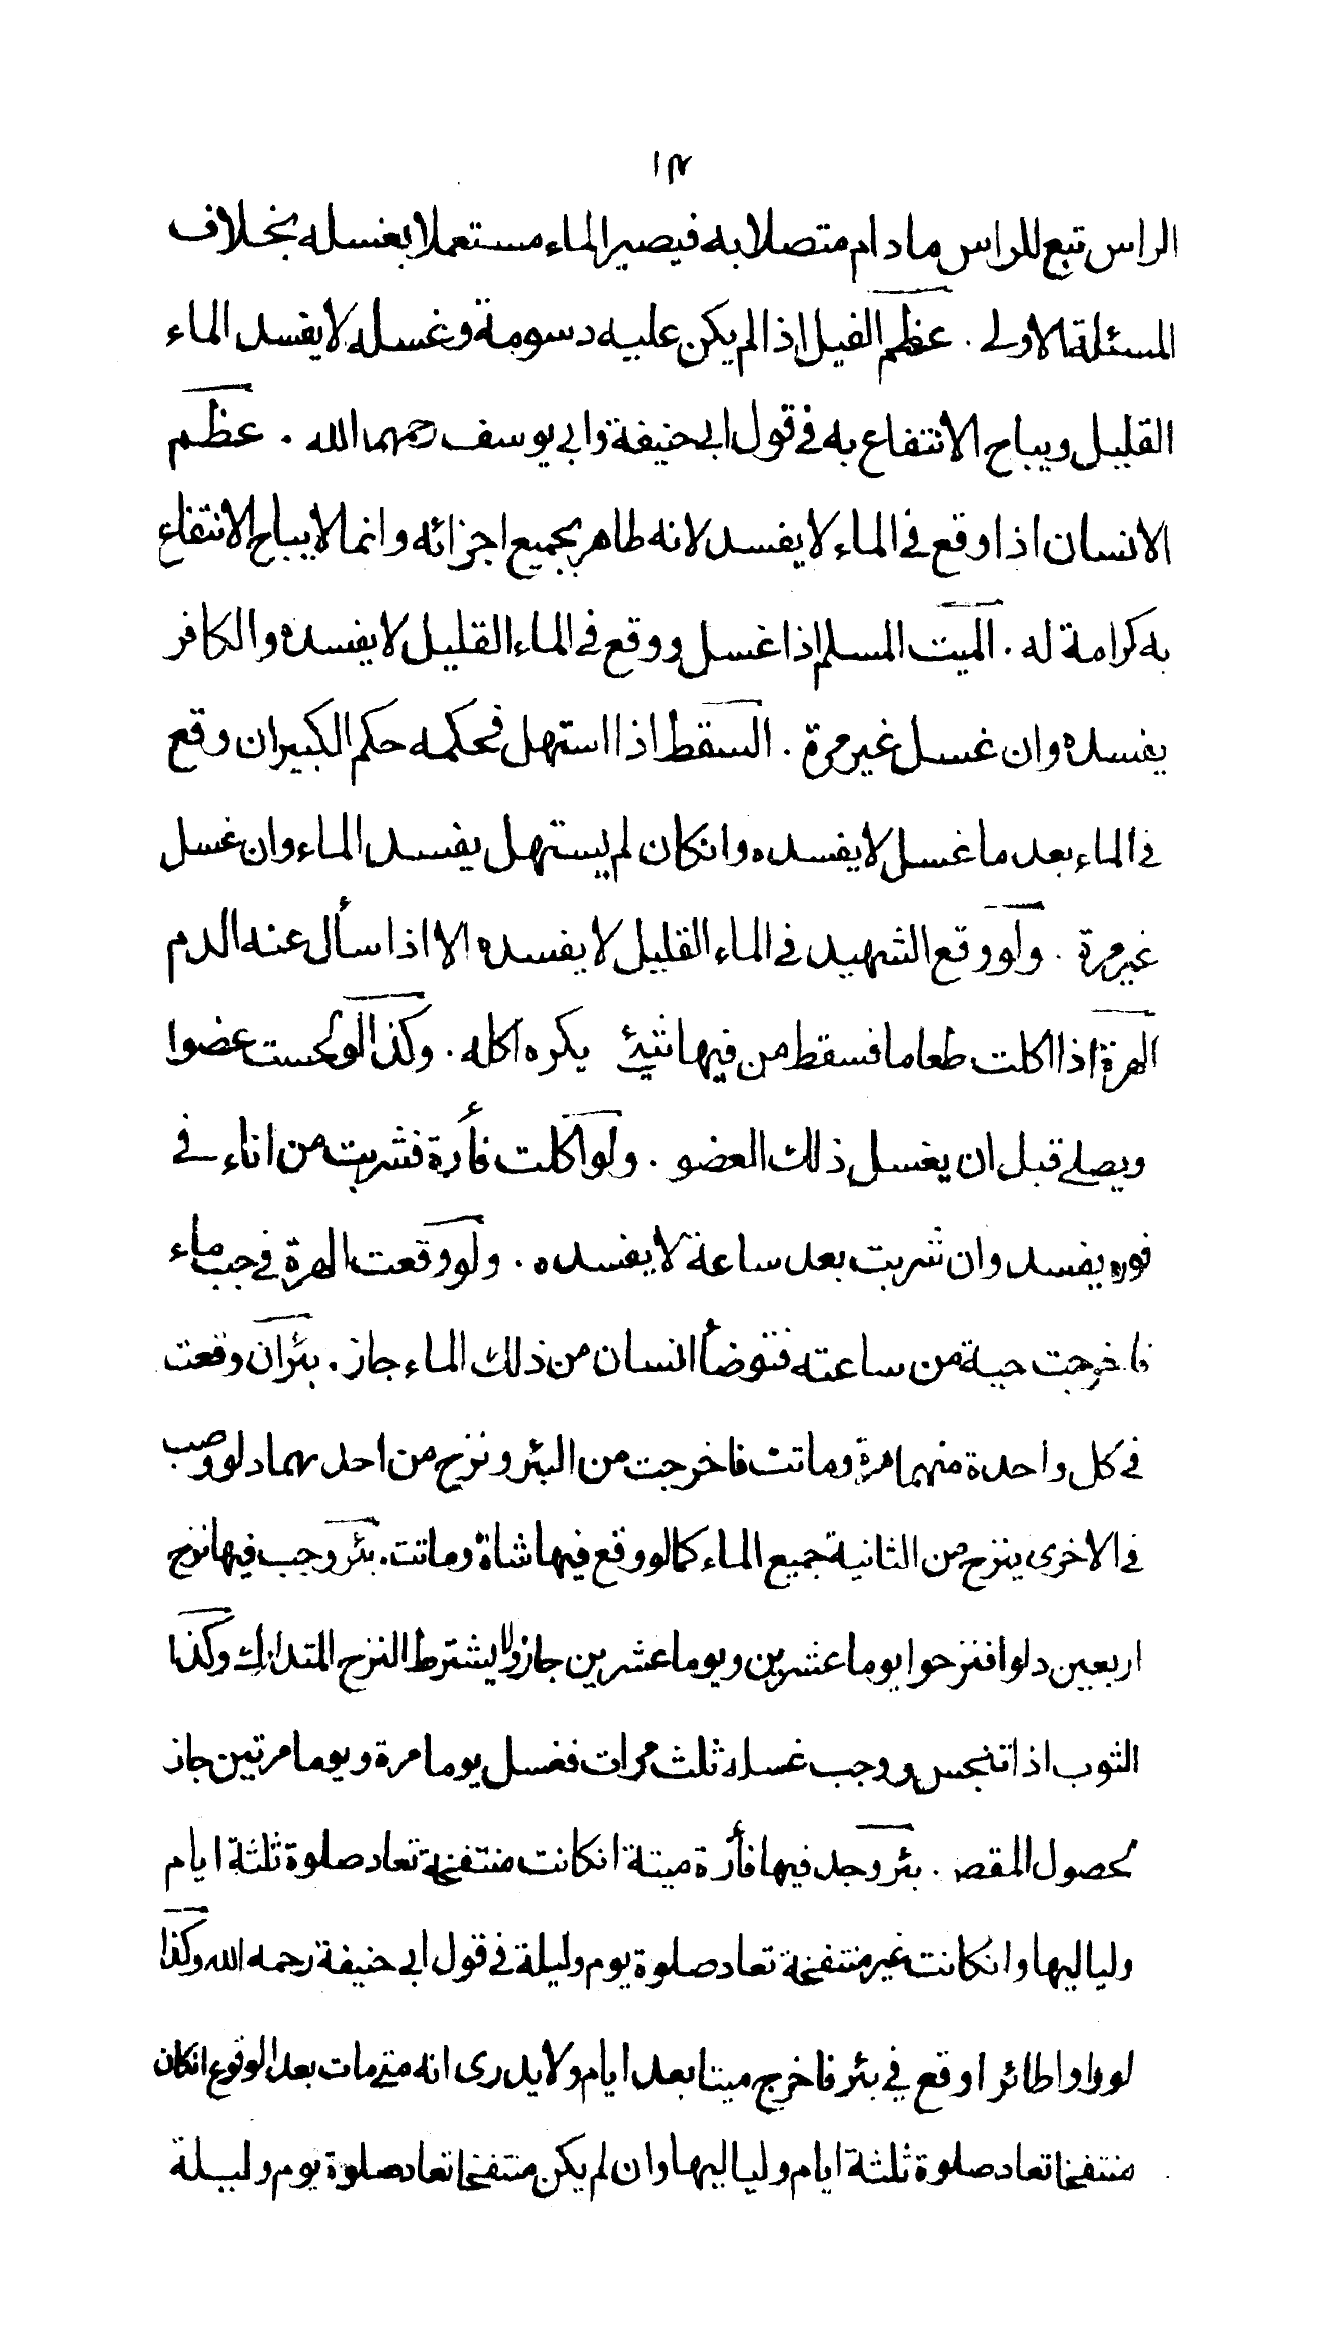 ١٣
الراس تبع للراس مادام متصلا به فيصير الماء مستعملا بغسله بخلاف
المسئلة الاولى . عظم الفيل اذا لم يكن عليه دسومة وغسله لا يفسد الماء
القليل ويباح الانتفاع به في قول ابي حنيفة وابي يوسف رحمهما الله . عظم
الانسان اذا وقع في الماء لا يفسد لانه طاهر بجميع اجزائه وانما لا يباح الانتفاع
به كرامة له . الميت المسلم اذا غسل ووقع في الماء القليل لا يفسده والكافر
يفسده وان غسل غير مرة . السقط اذا استهل فحكمه حكم الكبير ان وقع
في الماء بعد ما غسل لا يفسده وانكان لم يستهل يفسد الماء وان غسل
غير مرة . ولو وقع الشهيد في الماء القليل لا يفسده الا اذا سأل عنه الدم
الهرة اذا اكلت طعاما فسقط من فيها شئ يكره اكله . وكذا لو لحست عضوا
ويصلي قبل ان يغسل ذلك العضو . ولو اكلت فأرة فشربت من اناء في
فوره يفسد وان شربت بعد ساعة لا يفسده . ولو وقعت الهرة في جب ماء
فاخرجت حية من ساعته فتوضأ انسان من ذلك الماء جاز . بئران وقعت
في كل واحدة منهما هرة وماتت فاخرجت من البئر ونزح من احديهما دلو وصب
في الاخرى ينزح من الثانية جميع الماء كما لو وقع فيها شاة وماتت . بئر وجب فيها نزح
اربعين دلوا فنزحوا يوما عشرين ويوما عشرين جاز ولا يشترط النزح المتدارك وكذا
الثوب اذا تنجس ووجب غسله ثلث مرات فغسل يوما مرة ويوما مرتين جاز
لحصول المقصد . بئر وجد فيها فأرة ميتة انكانت منتفخة تعاد صلوة ثلثة ايام
ولياليها وانكانت غير منتفخة تعاد صلوة يوم وليلة في قول ابي حنيفة رحمه الله وكذا
لو راوا طائرا وقع في بئر فاخرج ميتا بعد ايام ولا يدرى انه متى مات بعد الوقوع انكان
منتفخا تعاد صلوة ثلثة ايام ولياليها وان لم يكن منتفخا تعاد صلوة يوم وليلة